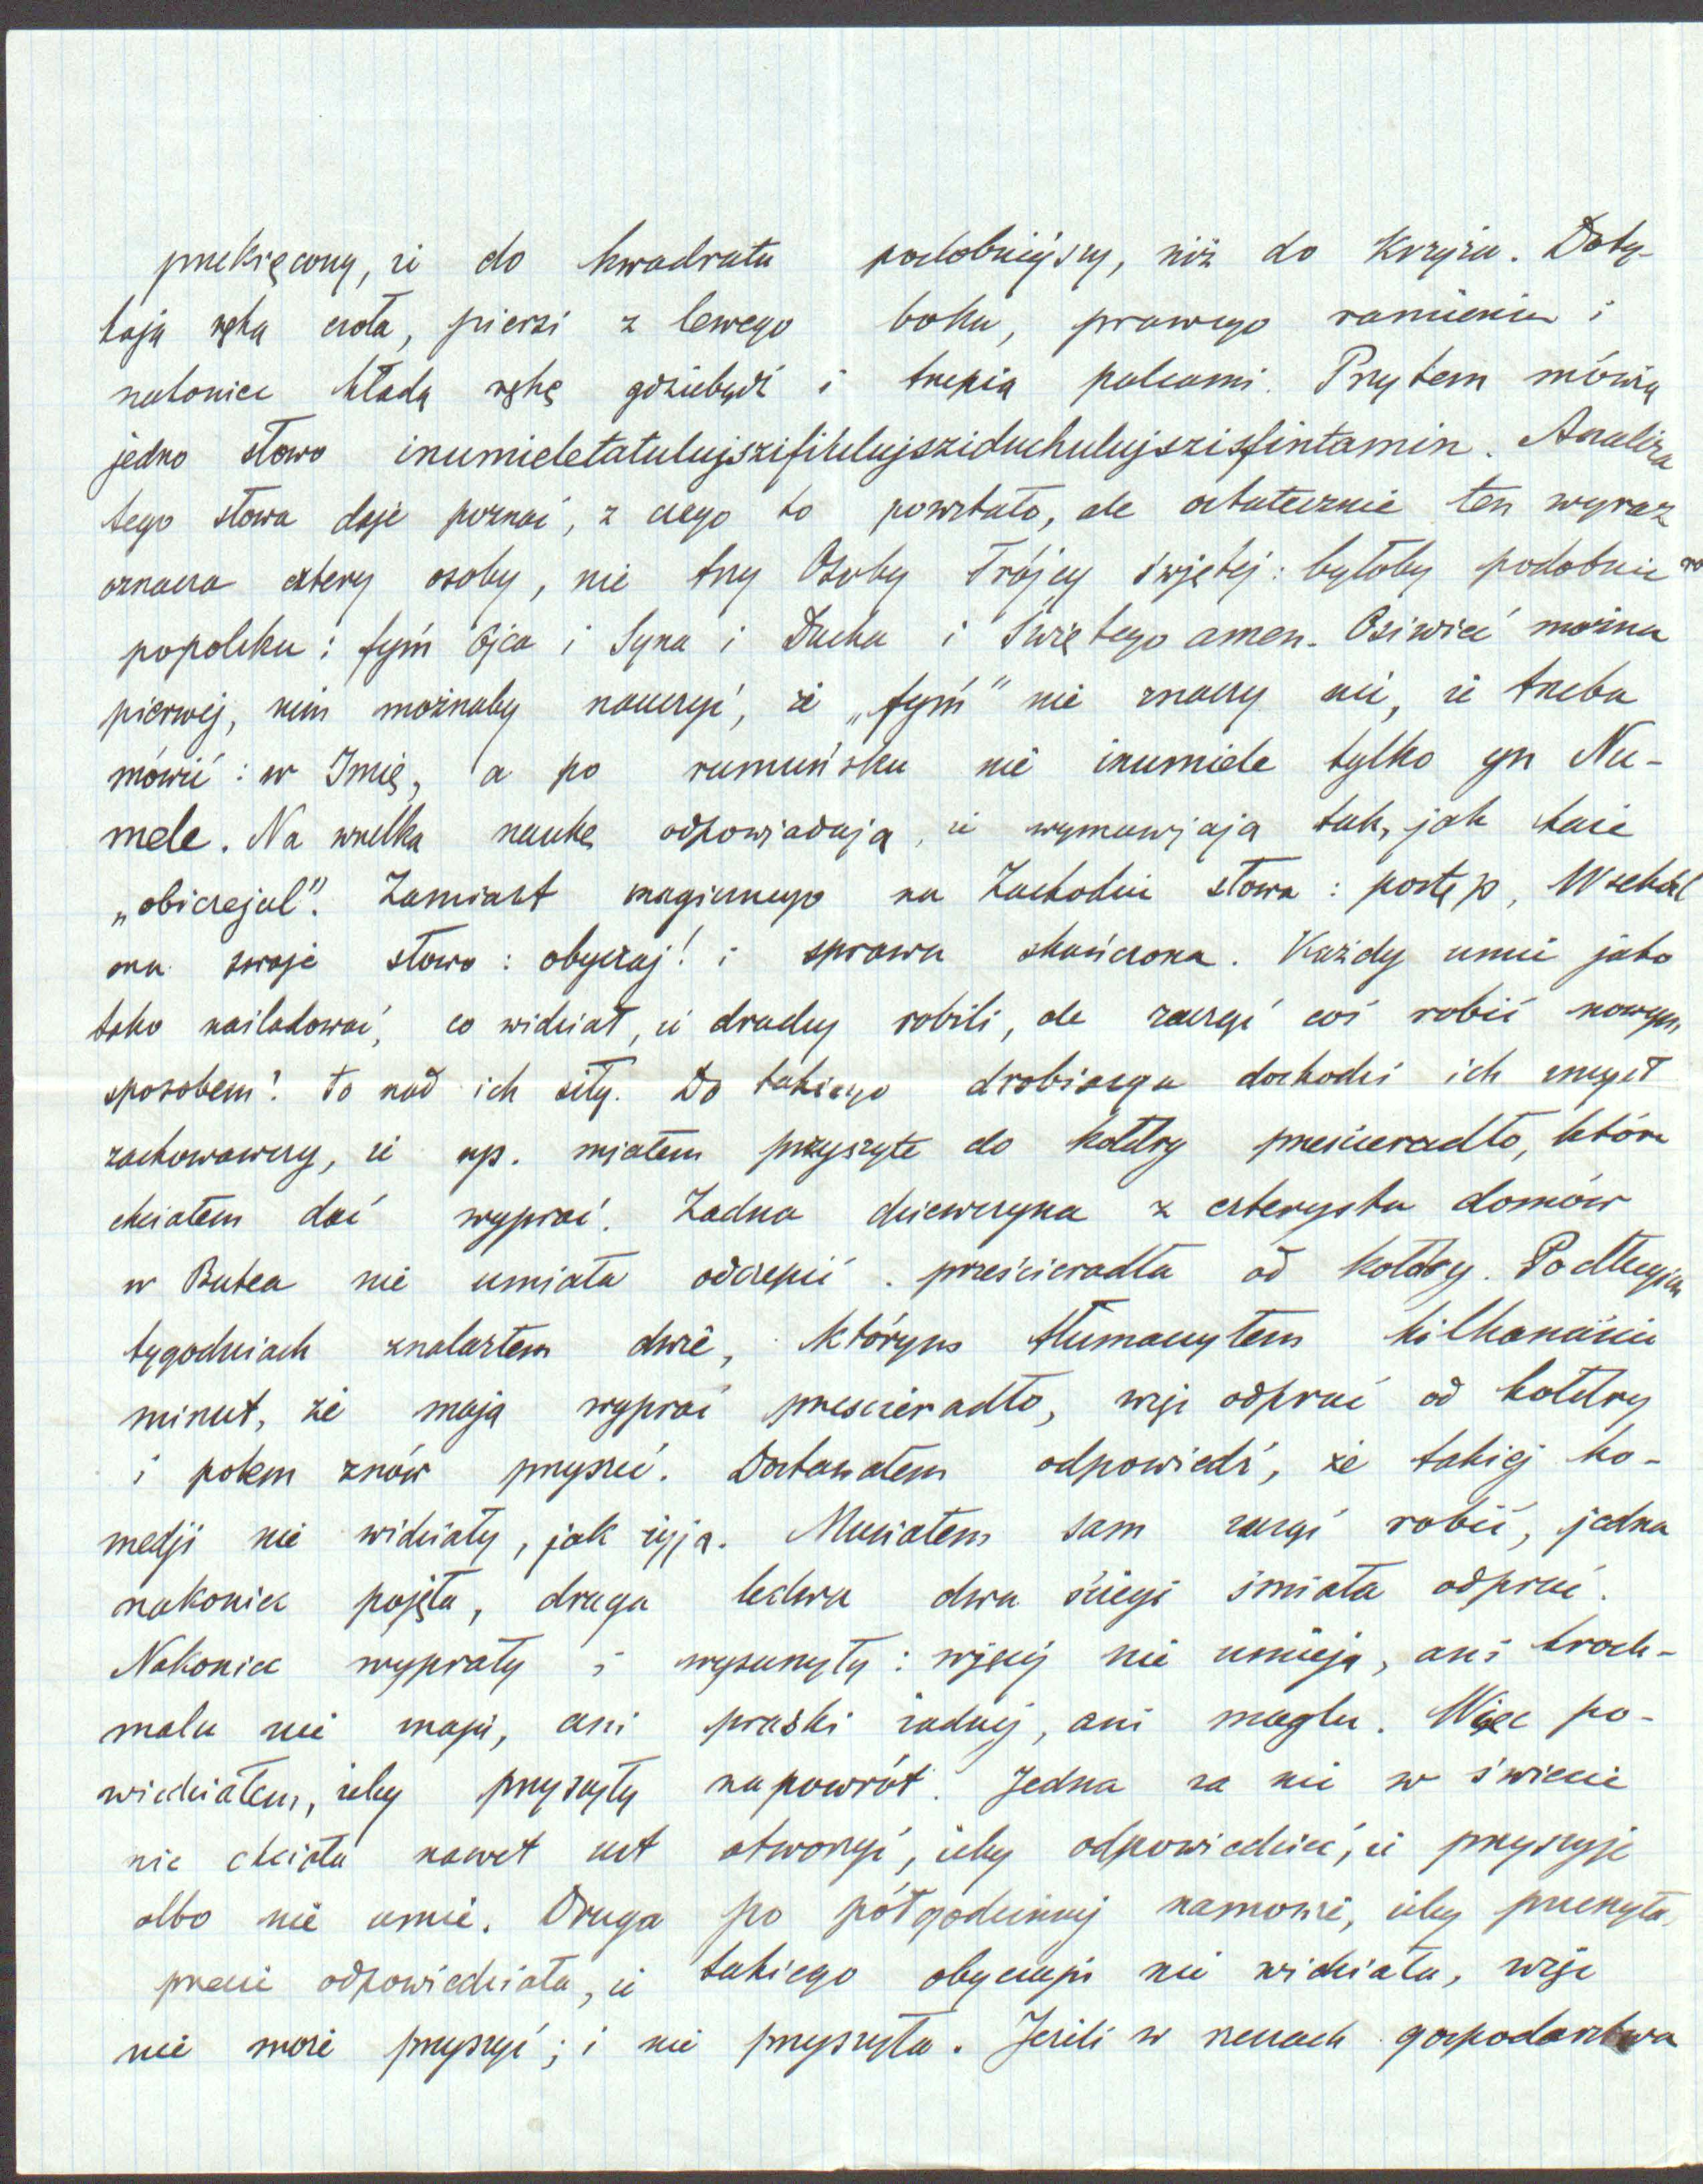 przekręcony, że do kwadratu podobniejszy, niż do Krzyża. Doty-
kają ręką czoła, piersi z lewego boku, prawego ramienia i
nakoniec kładą rękę gdziebądź i trzepią palcami. Przytem mówią
jedno słowo inumieletatulujszifiulujsziduchulujszisfintamin. Analiza
tego słowa daje poznać, z czego to powstało, ale ostatecznie ten wyraz
oznacza cztery osoby, nie trzy Osoby Trójcy świętej: byłoby podobnie
popolsku: fymi Ojca i Syna i Ducha i Świętego amen. Osiwieć można
pierwej, nim możnaby nauczyć, że „fymi" nie znaczy nic, że trzeba
mówić: w Imię, a po rumuńsku nie inumiele tylko yn Nu-
mele. Na wszelką naukę odpowiadają, że wymawiają tak, jak każe
„obiczejul". Zamiast magicznego na Zachodzie słowa: postęp, Wschód
ma swoje słowo: obyczaj! i sprawa skończona. Każdy umie jako
tako naśladować, co widział, że drudzy robili, ale zacząć coś robić nowym
sposobem! to nad ich siły. Do takiego drobiazgu dochodzi ich zmysł
zachowawczy, że np. miałem przyszyte do kołdry prześcieradło, które
chciałem dać wyprać. Żadna dziewczyna z czterystu domów
w Butea nie umiała odczepić prześcieradła od kołdry. Po długich
tygodniach znalazłem dwie, którym tłumaczyłem kilkanaście
minut, że mają wyprać prześcieradło, więc odpruć od kołdry
i potem znów przyszyć. Dostawałem odpowiedź, że takiej ko-
medji nie widziały, jak żyją. Musiałem sam zacząć robić, jedna
nakoniec pojęła, druga ledwo dwa ściegi śmiała odpruć.
Nakoniec wyprały i wysuszyły: więcej nie umieją, ani kroch-
malu nie mają, ani praski żadnej, ani maglu. Więc po-
wiedziałem, żeby przyszyły napowrót. Jedna za nic w świecie
nie chciała nawet ust otworzyć, żeby odpowiedzieć, że przyszyje
albo nie umie. Druga po półgodzinnej namowie, żeby przeszyła,
przecie odpowiedziała, że takiego obyczaju nie widziała, więc
nie może przyszyć; i nie przyszyła. Jeżeli w rzeczach gospodarstwa